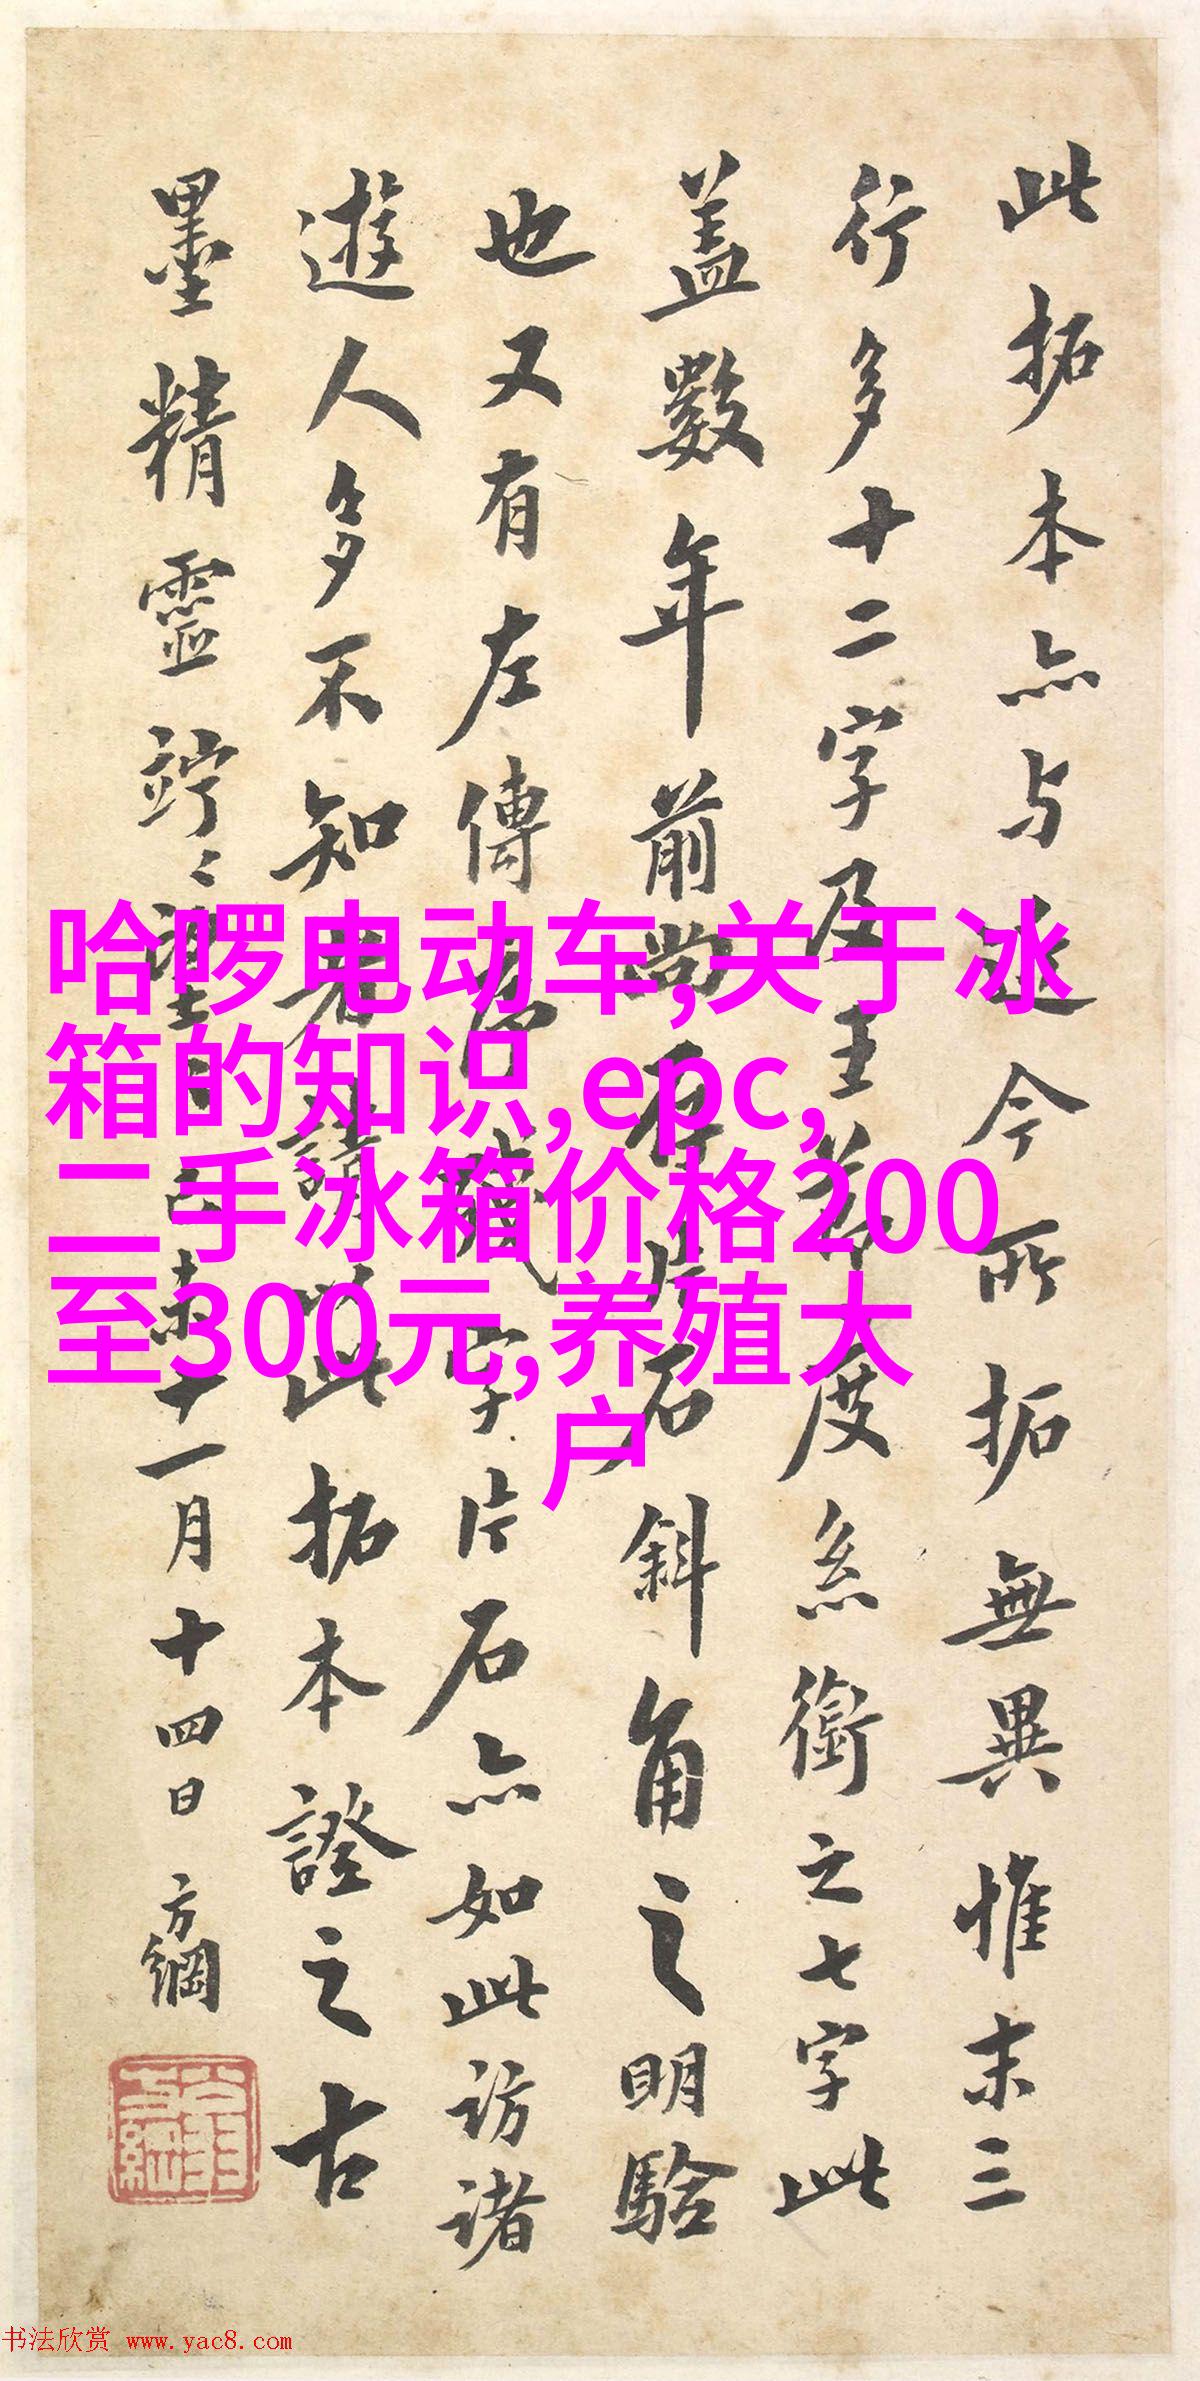 此拓本亦与近今所拓無異惟末三
行多十二字及王
度系銜之七字此
蓋數年前尚
石斜角之明驗
也又有左傳
字片石亦如此訪諸
遊人多不知
此拓本證之古
墨精靈
十一月十四日方綱
哈啰电动车,关于冰
箱的知识,epc,
二手冰箱价格200
至300元,养殖大
户
书法欣赏 www.yac8.com